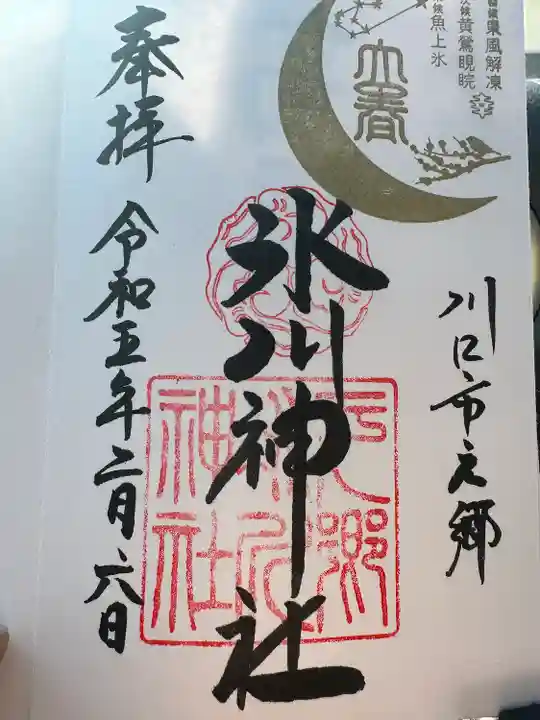 東風解凍
黄鶯睍睆
魚上氷
立春
川口市元郷
氷川神社
元郷
氷川
神社
奉拝
令和五年二月六日